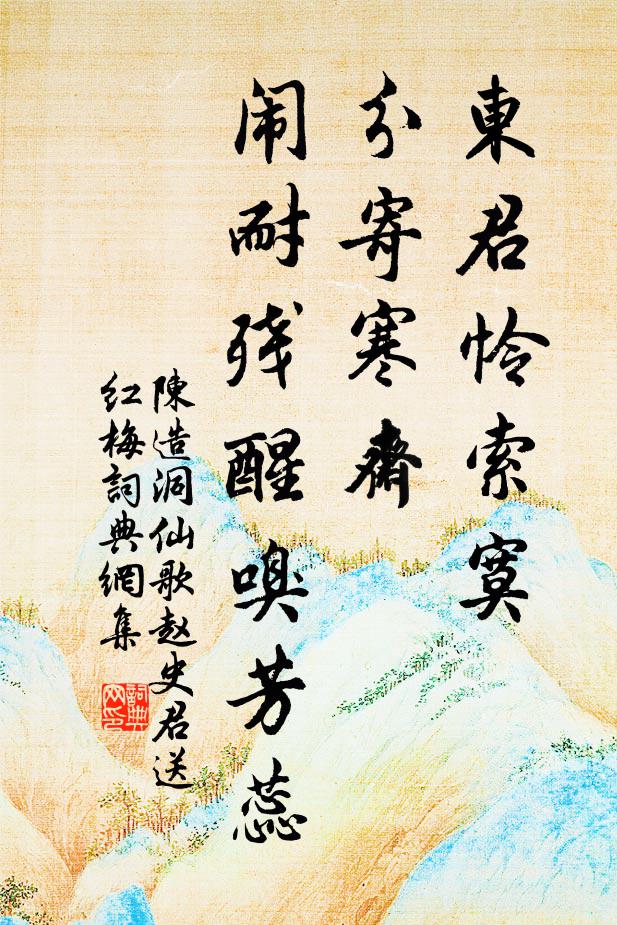 東君怜索寞
分寄寒齋
闹耐残醒嗅芳蕊
陳造洞仙歌赵史君送
红梅詞典網集
詞典
网印